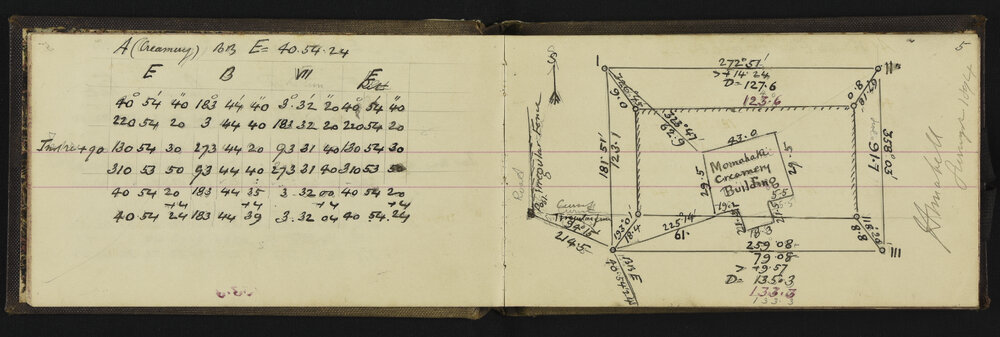 A (Creamery) BB E = 40.54.24
E B VII E
40° 54' 40" 183 44 40 3° 32' 20" 40° 54' 40"
220 54 20 3 44 40 183 32 20 220 54 20
130 54 30 273 44 20 93 31 40 130 54 30
310 53 50 93 44 40 273 31 40 310 53 50
40 54 20 183 44 35 3. 32 00 40 54 20
+4 +4 +4 +4
40 54 24 183 44 39 3. 32 04 40 54.24
5
I
272°51'
> +14.24
D= 127.6
123.6
II
9.0
8.0
323°47'
62.
43.0
181°51'
123.1
358°03'
91.7
29.5
Momahaki
Creamery
Building
29.5
Road
Post Irregular Fence
5.5
19.2
21.5
18.3
214.5
193°01'
18.4
225°14'
61.
8.8
III
259.08
79.08
> 79.57
D= 135.3
133.3
133.3
BB E
40.54.24